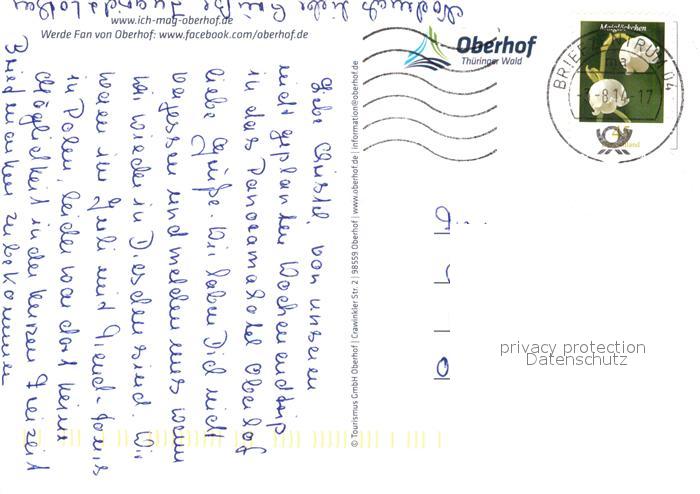 www.ich-mag-oberhof.de
Werde Fan von Oberhof: www.facebook.com/oberhof.de
Oberhof
Thüringer Wald
Maiglöckchen
BRIEFZENTRUM 04
-8.14-17
45
Deutschland
© Tourismus GmbH Oberhof | Crawinkler Str. 2 | 98559 Oberhof | www.oberhof.de | information@oberhof.de
Liebe Christel, von unserem
nicht geplanten Wochenendtrip
in das Panoramahotel Oberhof
liebe Grüße. Wir haben Dich nicht
vergessen und melden uns wenn
wir wieder in Dresden sind. Wir
waren im Juli mit
in Polen, leider war dort keine
Möglichkeit in der kurzen Freizeit
Briefmarken zu bekommen
Nochmals liebe Grüße
privacy protection
Datenschutz